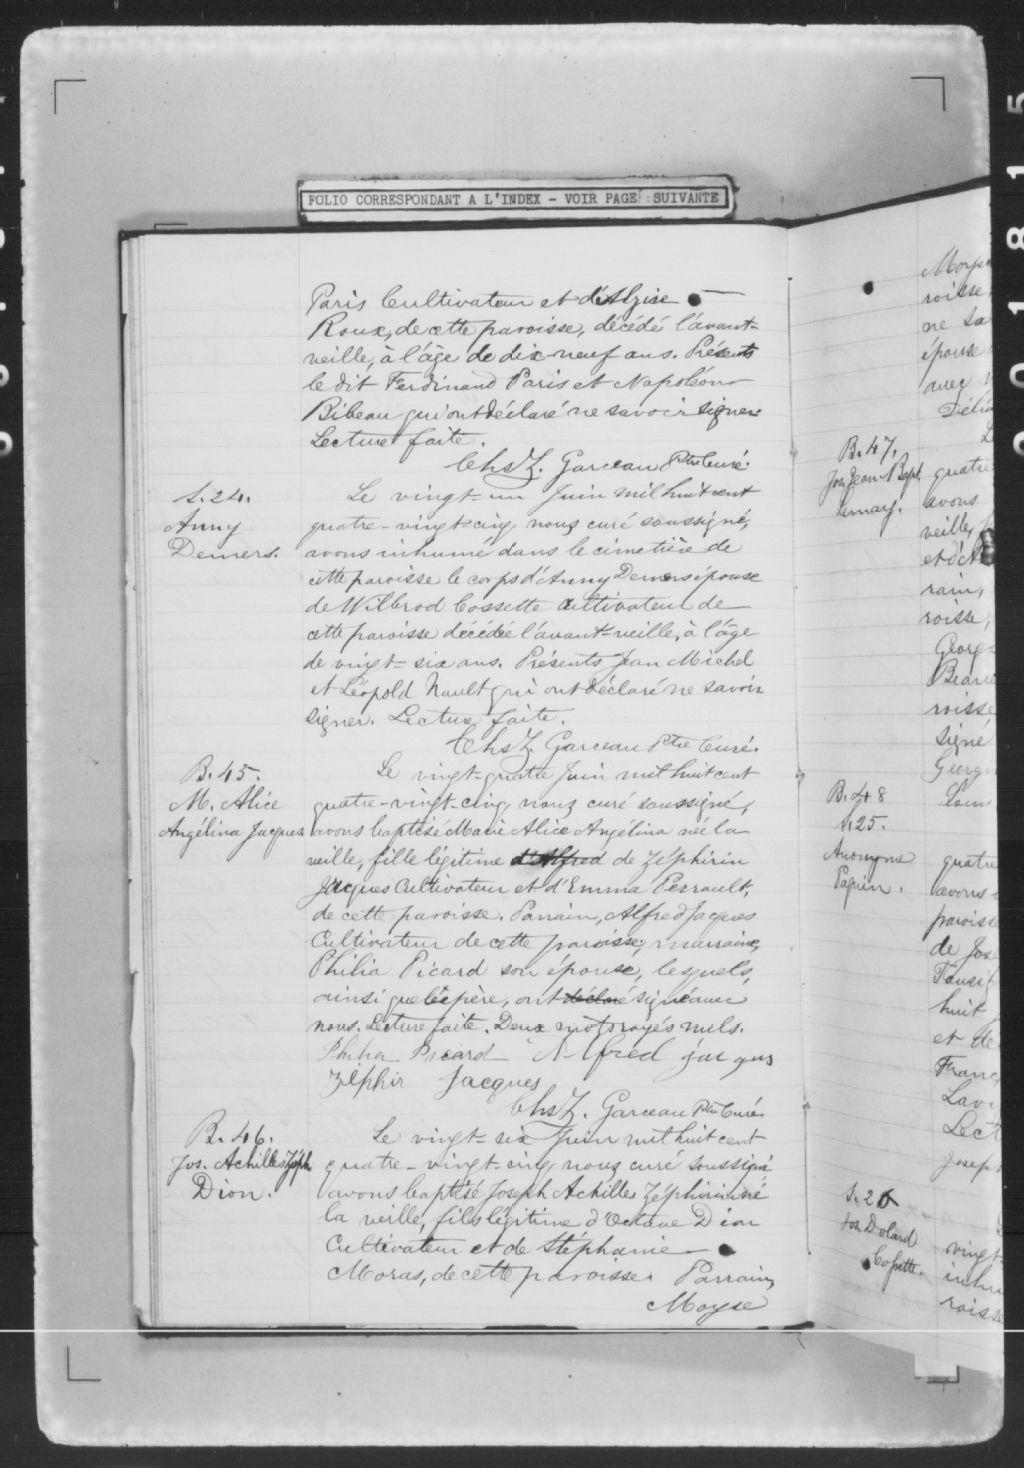 FOLIO CORRESPONDANT A L'INDEX - VOIR PAGE SUIVANTE
Paris Cultivateur et d'Alzise
Roux, de cette paroisse, décédé l'avant-
veille, à l'âge de dix-neuf ans. Présents
le dit Ferdinand Paris et Napoléon
Bibeau qui ont déclaré ne savoir signer.
Lecture faite.
Chs Z. Garceau Ptre Curé.
S. 24.
Anny
Demers.
Le vingt-un Juin mil huit cent
quatre-vingt-cinq, nous curé soussigné,
avons inhumé dans le cimetière de
cette paroisse le corps d'Anny Demers épouse
de Wilbrod Cossette cultivateur de
cette paroisse décédée l'avant-veille, à l'âge
de vingt-six ans. Présents Jean Michel
et Léopold Nault qui ont déclaré ne savoir
signer. Lecture faite.
Chs Z. Garceau Ptre Curé.
B. 45.
M. Alice
Angélina Jacques
Le vingt-quatre Juin mil huit cent
quatre-vingt-cinq, nous curé soussigné,
avons baptisé Marie Alice Angélina née la
veille, fille légitime d'Alfred de Zéphirin
Jacques Cultivateur et d'Emma Perrault,
de cette paroisse. Parrain, Alfred Jacques
Cultivateur de cette paroisse; marraine,
Philia Picard son épouse, lesquels,
ainsi que le père, ont déclaré signé avec
nous. Lecture faite. Deux mots rayés nuls.
Philia Picard Alfred jac ques
Zéphir Jacques
Chs Z. Garceau Ptre Curé.
B. 46.
Jos. Achille Zéph.
Dion.
Le vingt-six Juin mil huit cent
quatre-vingt-cinq, nous curé soussigné
avons baptisé Joseph Achille Zéphirin né
la veille, fils légitime d'Octave Dion
Cultivateur et de Stéphanie
Moras, de cette paroisse. Parrain,
Moyse
Moyse
roisse,
ne sa
épouse
avec
Délia
B. 47.
Jos. Jean Bapt.
Lemay.
quatre
avons
veille,
rain,
roisse,
George
Beau
roisse
signé
Georgi
B. 48
S. 25.
Anonyme
Papin.
quatre
avons
paroisse
de Jos
huit
et de
Franç
Lect
Joseph
S. 26
Jos. Dolard
Cossette.
vingt-
inhu
roisse